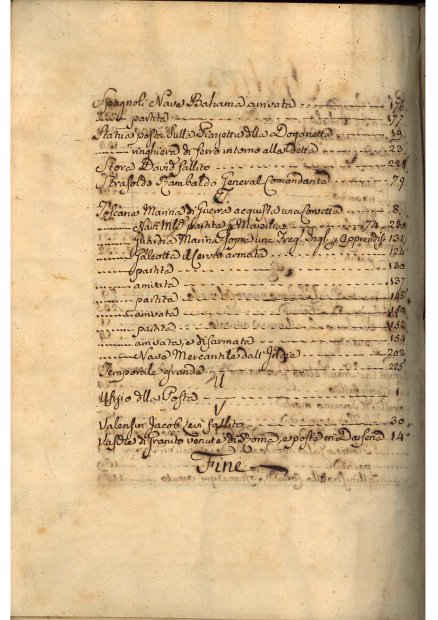 Spagnoli Nave Bahama arrivata 176
partita 177
Statua posta sulla Piazzetta della Doganetta 19
ringhiera di ferro intorno alla detta 23
Store David fallito 228
Strasoldo Rambaldo General Comandante 79
T
Toscana Marina di Guerra acquista una Corvetta 8
Navi partita p Marsilia 74 230
Guardia Marina sopra una Freg. Ingl. p apprendist 131
Galeotta il Cervo armata 124
partita 130
arrivata 137
partita 145
arrivata 150
partita 152
arrivata e disarmata 154
Nave Mercantile dall' Indie 202
Temporale grande 225
U
Ufizio della Posta 1
V
Valensin Jacob Levi fallito 30
Vasche di Granito venute di Roma, e poste in Darsena 14
Fine